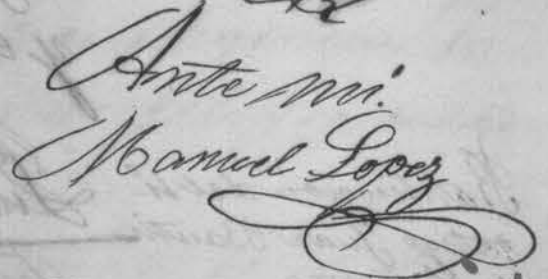 Ante mi.
Manuel Lopez